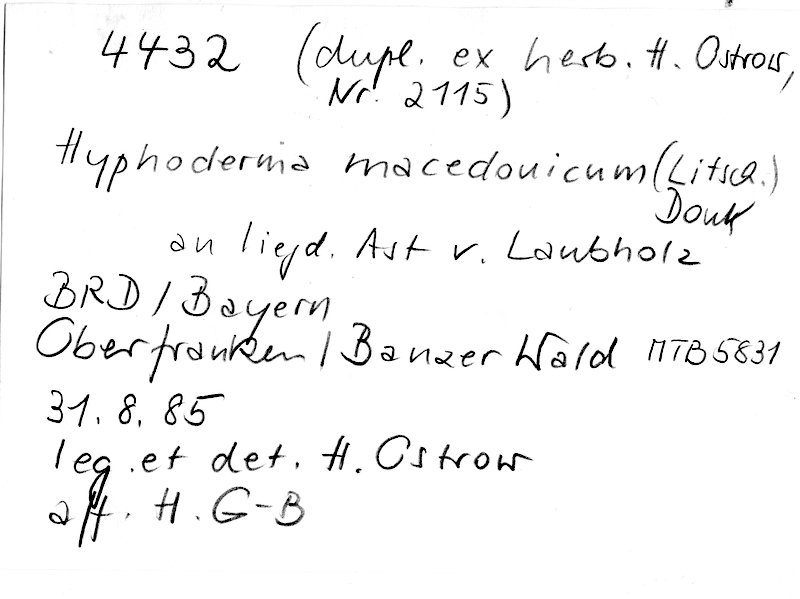 4432 (dupl. ex herb. H. Ostrow,
Nr. 2115)
Hyphoderma macedonicum (Litsch.)
Donk
an liegd. Ast v. Laubholz
BRD / Bayern
Oberfranken / Banzer Wald MTB 5831
31. 8. 85
leg. et det. H. Ostrow
aff. H. G-B